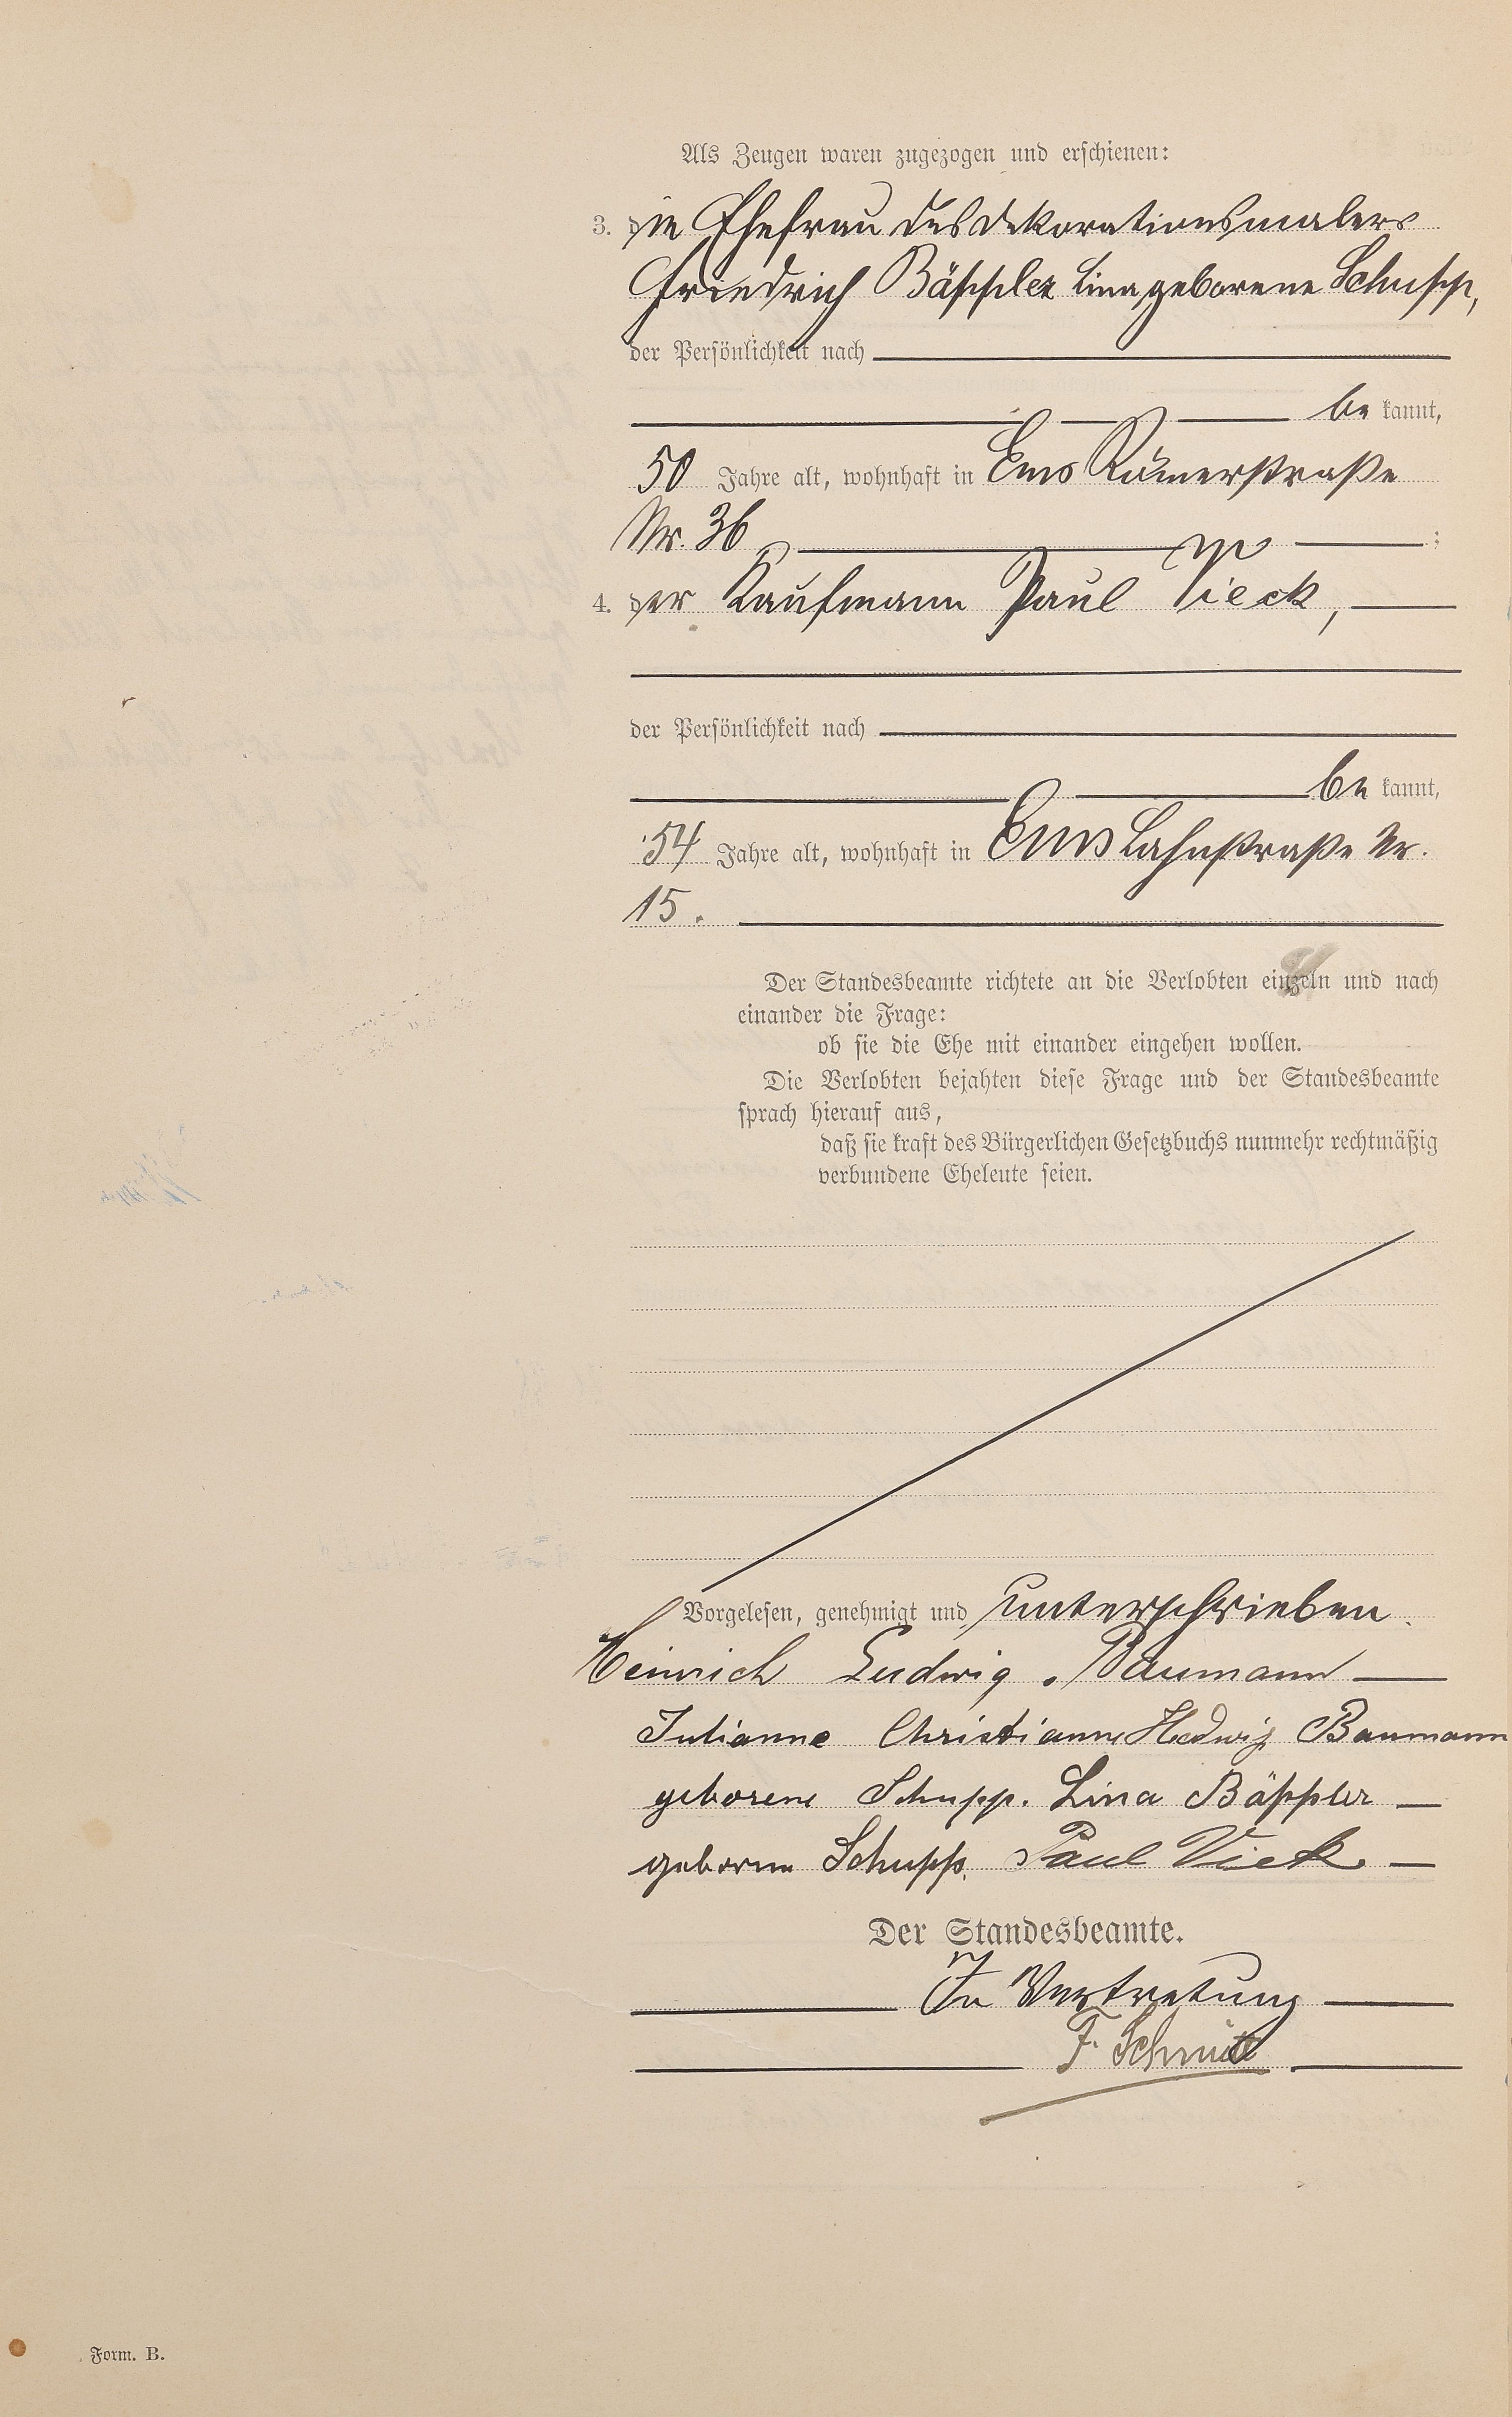 Als Zeugen waren zugezogen und erschienen:
3. die Ehefrau des Dekorationsmalers
Friedrich Bäppler Lina geborene Schupp,
der Persönlichkeit nach
be kannt,
50 Jahre alt, wohnhaft in Ems Römerstraße
Nr. 36 ;
4. der Kaufmann Paul Vieck,
der Persönlichkeit nach
be kannt,
54 Jahre alt, wohnhaft in Ems Lahnstraße Nr.
15.
Der Standesbeamte richtete an die Verlobten einzeln und nach
einander die Frage:
ob sie die Ehe mit einander eingehen wollen.
Die Verlobten bejahten diese Frage und der Standesbeamte
sprach hierauf aus,
daß sie kraft des Bürgerlichen Gesetzbuchs nunmehr rechtmäßig
verbundene Eheleute seien.
Vorgelesen, genehmigt und unterschrieben.
Heinrich Ludwig Baumann
Julianne Christianne Hedwig Baumann
geborene Schupp. Lina Bäppler
geborne Schupp. Paul Vieck.
Der Standesbeamte.
In Vertretung
F. Schmitt
Form. B.